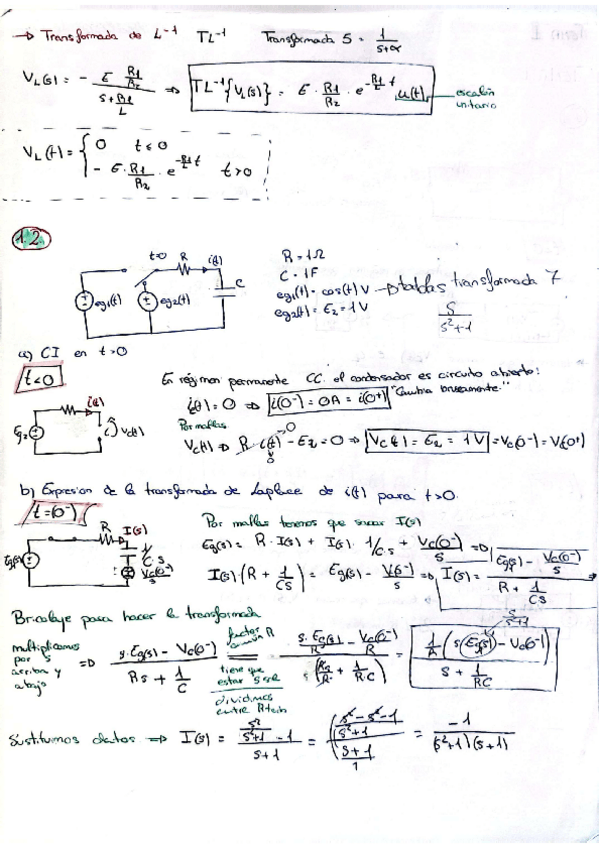 → Transformada de L⁻¹ TL⁻¹ Transformada 5 = 1/(s+α)
V_L(s) = - E R1/R2 / (s + R1/L) ⇒ TL⁻¹{V_L(s)} = E · R1/R2 · e^(-R1/L t) · u(t) → escalón unitario
V_L(t) = { 0 t<0
- E · R1/R2 · e^(-R1/L t) t>0
1.2
t=0 R i(t) C eg1(t) eg2(t)
R = 1Ω
C = 1F
eg1(t) = cos(t) V → tablas transformada 7
eg2(t) = E2 = 1V s/(s²+1)
a) CI en t>0
t<0 En régimen permanente CC el condensador es circuito abierto:
i(t) = 0 ⇒ i(0⁻) = 0A = i(0⁺) "Cambia bruscamente."
Por mallas
Eg2 i(t) Vc(t) Vc(t) ⇒ R · i(t) - E2 = 0 ⇒ Vc(t) = E2 = 1V = Vc(0⁻) = Vc(0⁺)
b) Expresion de la transformada de Laplace de i(t) para t>0.
t=(0⁻) Por mallas tenemos que sacar I(s)
Eg(s) R I(s) 1/C·s Vc(0⁻)/s Eg(s) = R · I(s) + I(s) · 1/C·s + Vc(0⁻)/s ⇒
I(s) · (R + 1/Cs) = Eg(s) - V(0⁻)/s ⇒ I(s) = (Eg(s) - Vc(0⁻)/s) / (R + 1/Cs)
Bricolaje para hacer la transformada
multiplicamos por s arriba y abajo ⇒ (s·Eg(s) - Vc(0⁻)) / (Rs + 1/C) factor común R = (s·Eg(s)/R - Vc(0⁻)/R) / (s (R/R + 1/R·C)) = (1/R (s (Eg(s)) - Vc(0⁻))) / (s + 1/RC) s/(s²+1)
tiene que estar s sola
dividimos entre R
Sustituimos datos ⇒ I(s) = (s²/(s²+1) - 1) / (s+1) = ((s² - s² - 1)/(s²+1)) / ((s+1)/1) = -1 / ((s²+1)(s+1))